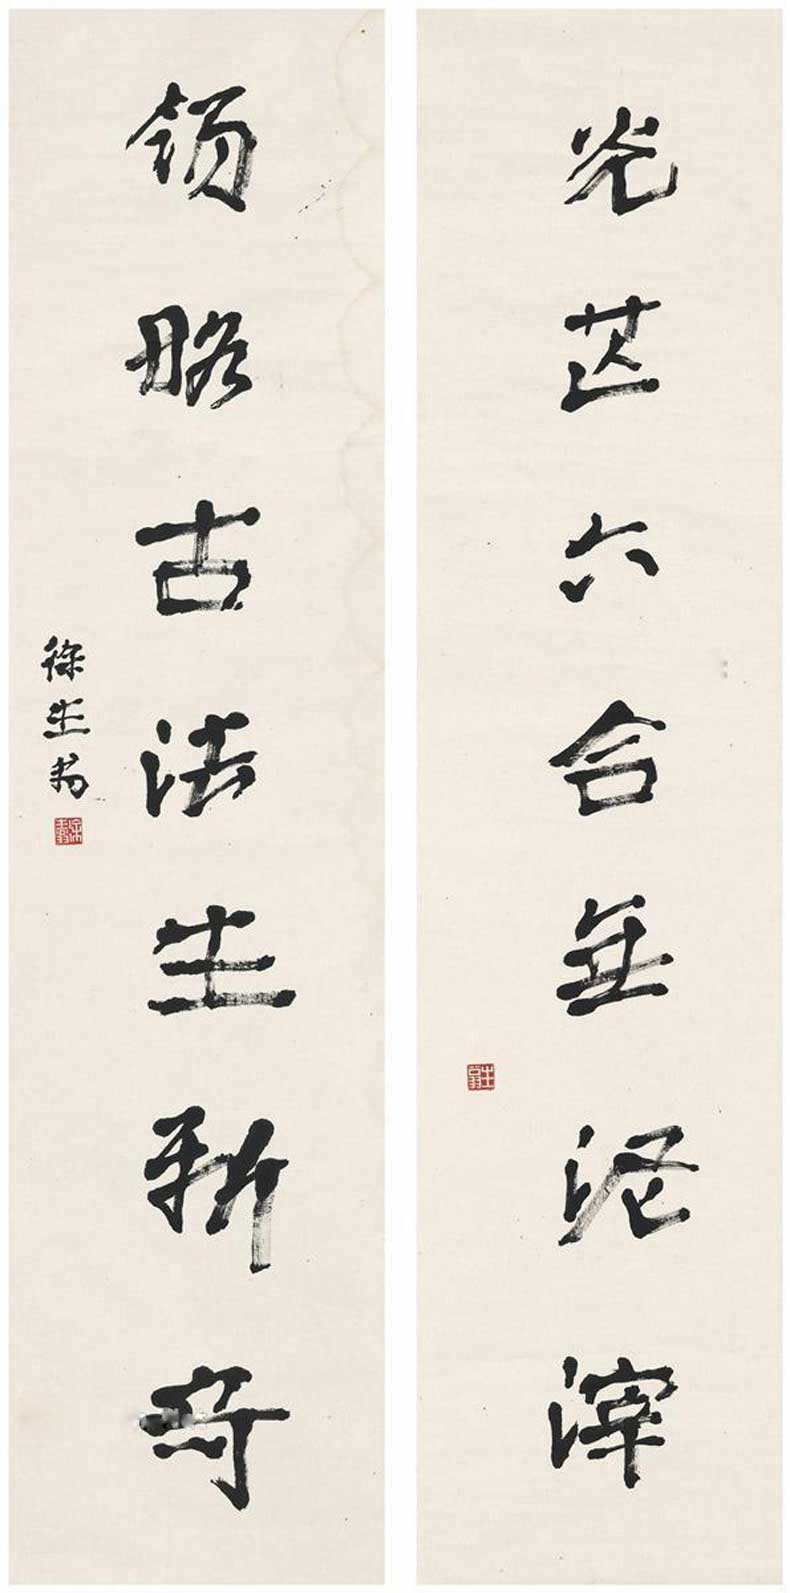 光芒六合無泥滓
領略古法生新奇
徐生翁